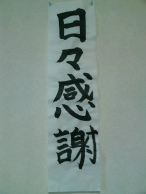 日々感謝